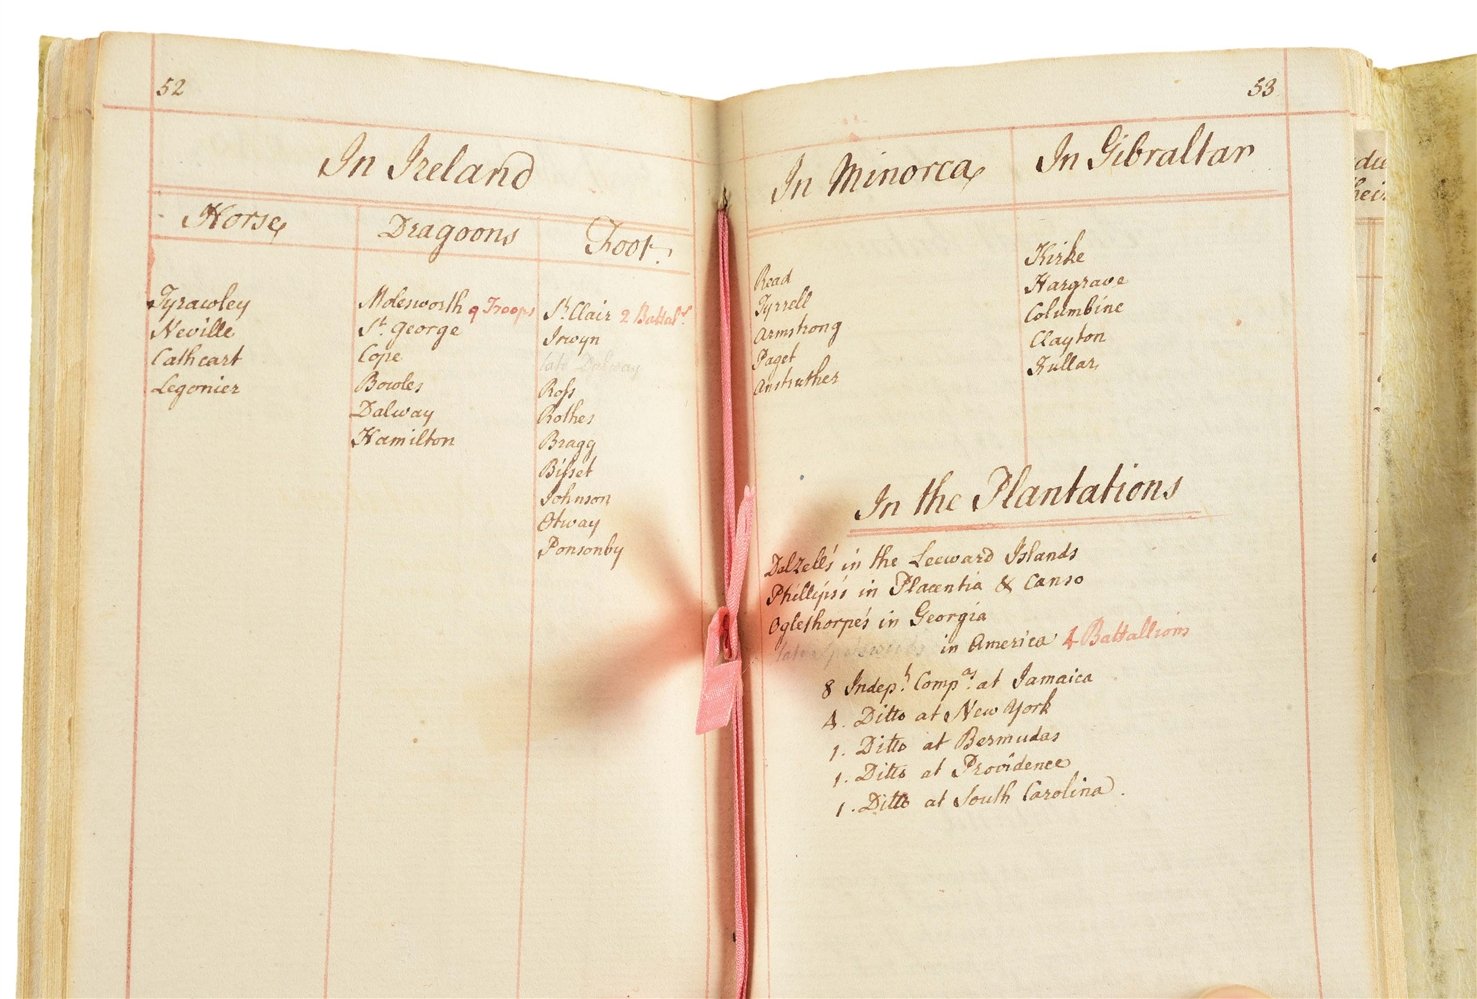 52
In Ireland
Horse
Tyrawley
Neville
Cathcart
Legonier
Dragoons
Molesworth 9 Troops
St. George
Cope
Bowles
Dalway
Hamilton
Foot.
St. Clair 2 Battals.
Irwyn
late Dalway
Ross
Rothes
Bragg
Bisset
Johnson
Otway
Ponsonby
53
In Minorca
Read
Tyrrell
Armstrong
Paget
Anstruther
In Gibraltar
Kirke
Hargrave
Columbine
Clayton
Fullar
In the Plantations
Dalzell's in the Leeward Islands
Phillips's in Placentia & Canso
Oglethorpe's in Georgia
late in America 4 Battallions
8 Indept. Compas. at Jamaica
4. Ditto at New York
1. Ditto at Bermudas
1. Ditto at Providence
1. Ditto at South Carolina.